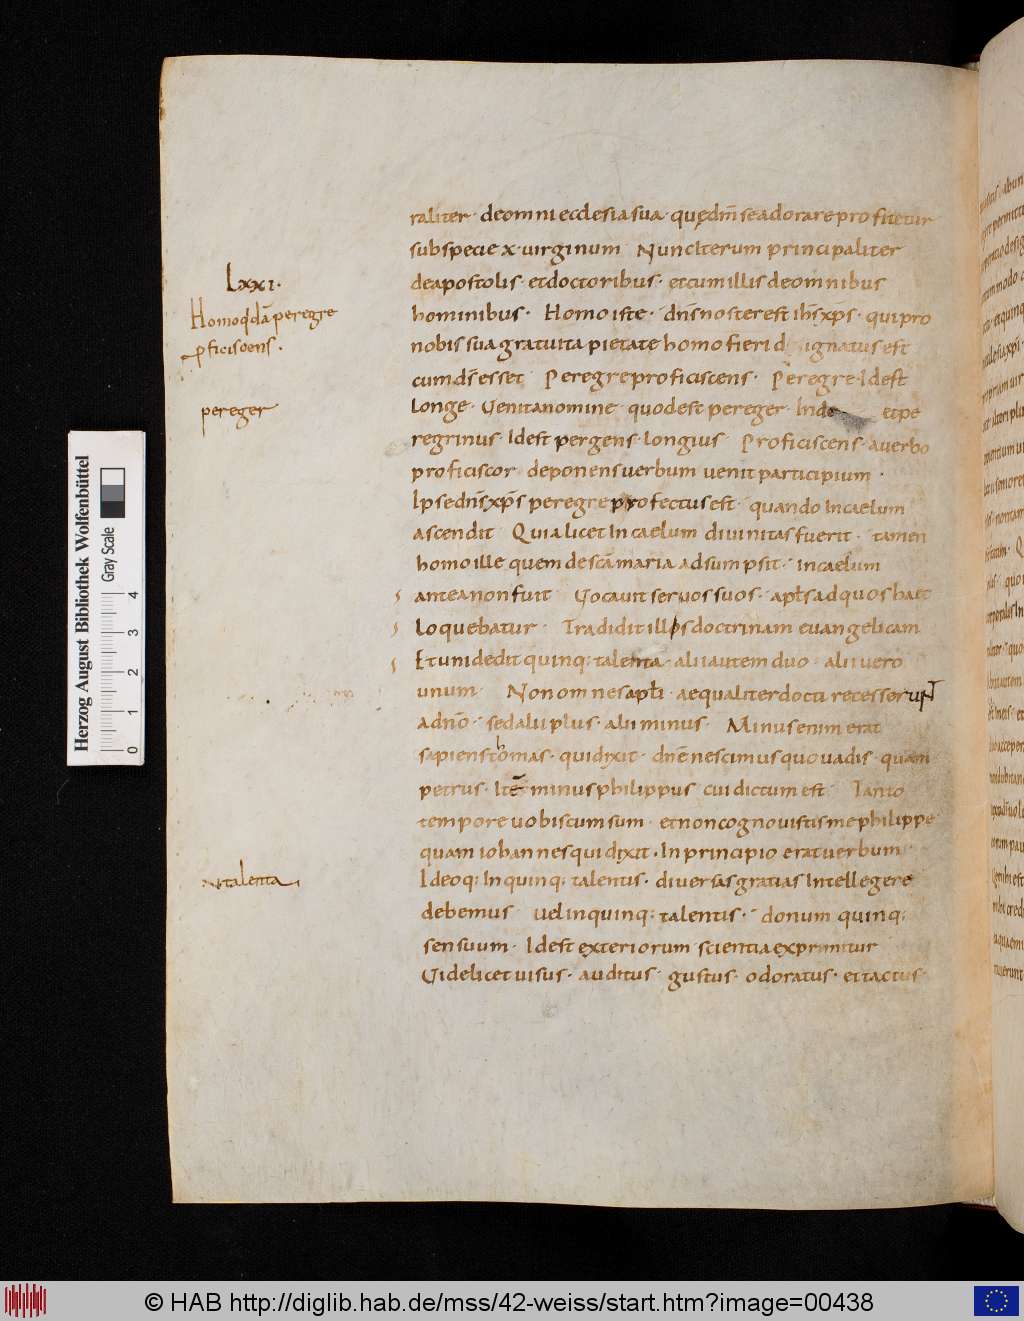 raliter· deomni ecclesia sua· quę dm̄ se adorare profitetur
sub specie x· uirginum Nunc Iterum principaliter
de apostolis· et doctoribus· et cum illis de omnibus
hominibus· Homo iste· dn̄s noster est ihs̄ xp̄s· qui pro
nobis sua gratuita pietate homo fieri dignatus est
cum ds̄ esset Peregre proficiscens· Peregre· Id est
Longe· Uenit a nomine quod est pereger· Inde et pe
regrinus· Id est pergens· longius Proficiscens· a uerbo
proficiscor· deponens uerbum uenit participium·
Ipse dn̄s xp̄s peregre profectus est· quando In caelum
ascendit Quia licet In caelum diuinitas fuerit· tamen
homo ille quem de scā maria adsumpsit· in caelum
antea non fuit Uocauit seruos suos· apl̄s ad quos haec
Loquebatur· Tradidit illis doctrinam euangelicam
Et uni dedit quinq; talenta· alii autem duo· alii uero
unum· Non omnes apl̄i· aequaliter docti recesserunt
ad nō· sed alii plus· alii minus Minus enim erat
sapiens thomas· qui dixit· dnē nescimus quo uadis· quam
petrus· Itē minus philippus cui dictum est Tanto
tempore uobiscum sum· et non cognouistis me philippe
quam iohannes qui dixit· In principio erat uerbum
Ideoq; In quinq; talentis· diuersas gratias Intellegere
debemus uel in quinq; talentis· donum quinq;
sensuum· Id est exteriorum scientia exprimitur
Uidelicet uisus· auditus· gustus· odoratus· et tactus
Lxxi·
Homo qdā peregre
pficiscens·
pereger
talenta
Herzog August Bibliothek Wolfenbüttel
Gray Scale
0 1 2 3 4
© HAB http://diglib.hab.de/mss/42-weiss/start.htm?image=00438